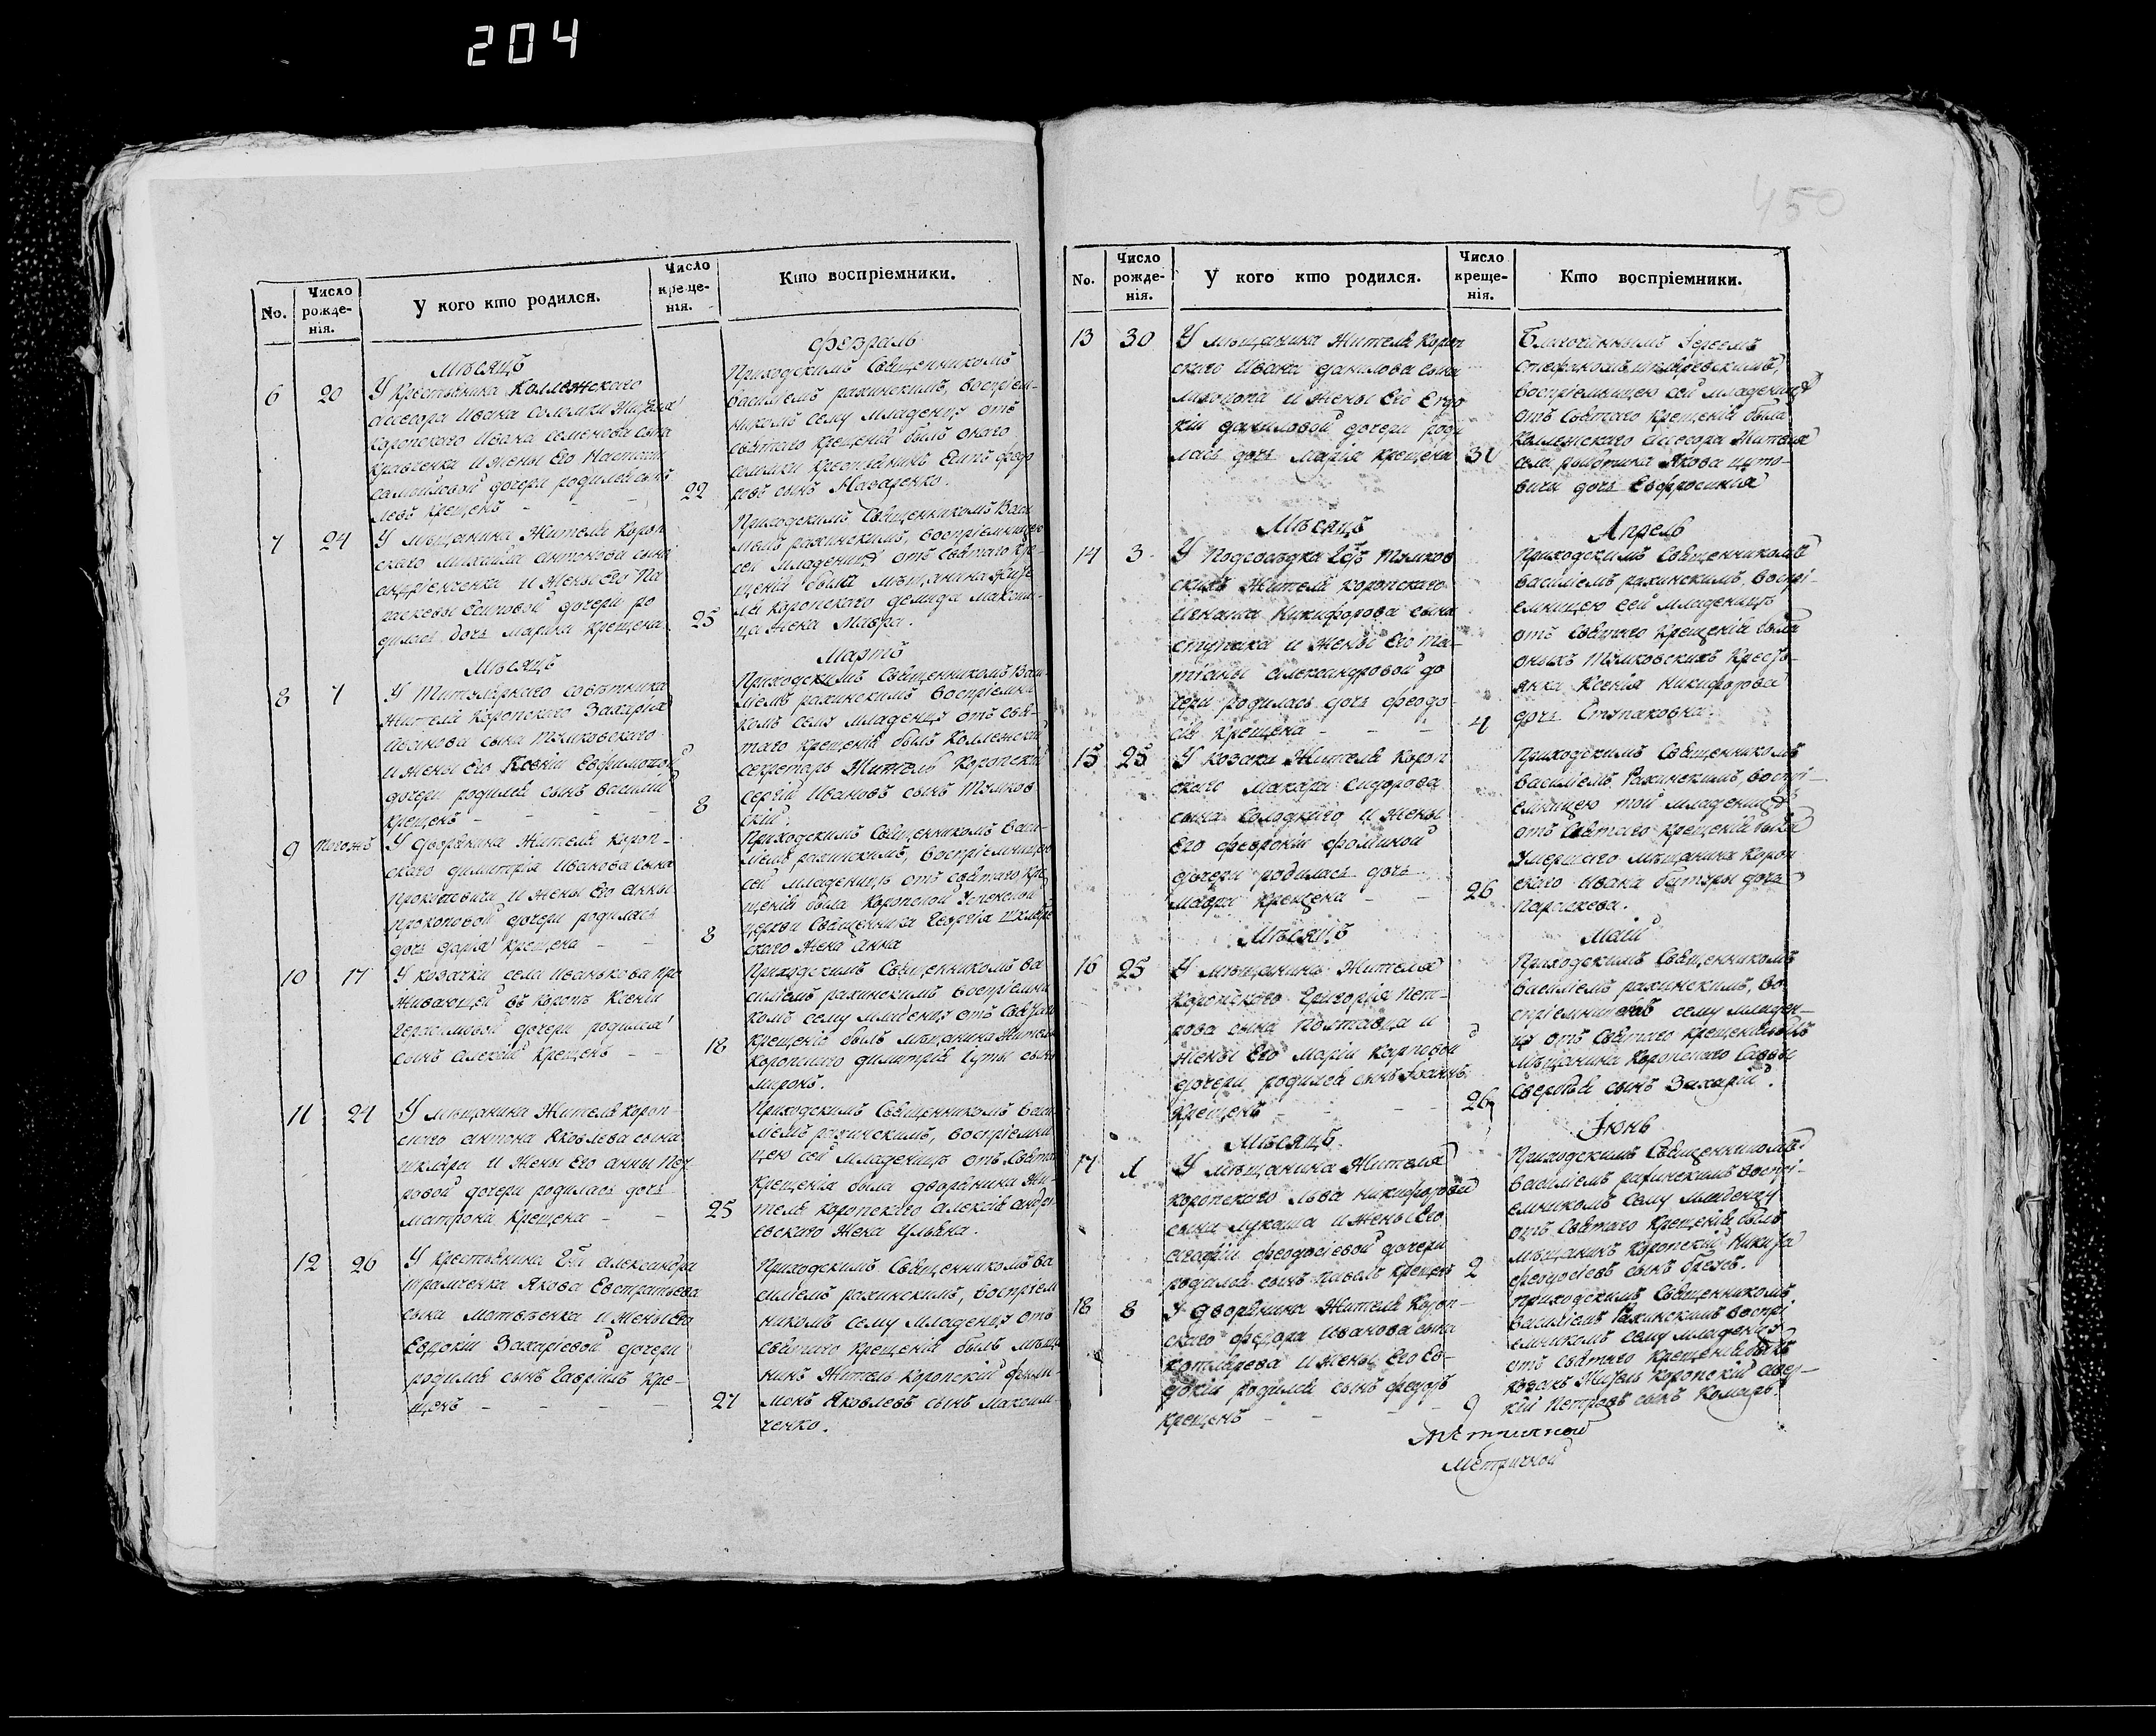 204
No.
Число рожде-нія.
У кого кто родился.
Число креще-нія.
Кто воспріемники.
мѣсяцъ
февраль
6
20
У крестьянина Коллежского
асесора Ивана соломки жителя
коропского Ивана семенова сына
кравченка и жены Его Настасіи
самойловой дочери родился сынъ
левъ крещенъ - -
22
Приходскимъ Священникомъ
василіемъ рахинскимъ, воспріем-
никомъ сему младенцу отъ
святаго крещенія былъ оного
соломки крестьянинъ федо
ровъ сынъ Назаренко.
7
24
У мѣщанина жителя Короп
ского михаила антонова сына
андріенченка и жены Его Па
раскевы дочери ро
дилась дочь марина крещена
25
Приходскимъ Священникомъ Васи
ліемъ рахинскимъ, воспріемницею
сей младеницѣ отъ святаго кре-
щенія была мѣщанина жите
ля коропского демида
жена Мавра.
Мѣсяцъ
Мартъ
8
7
У Титулярного совѣтника
жителя Коропского Захарія
Иванова сына Тумковского
и жены Его Ксеніи Евфимовой
дочери родился сынъ василій
крещенъ - - - -
8
Приходскимъ Священникомъ Васи
ліемъ рахинскимъ воспріемни
комъ сему младенцу отъ свя-
таго крещенія былъ Коллежскій
секретарь Житель Коропскій
сергій Ивановъ сынъ Тумков
скій.
9
тогожъ
У дворянина жителя короп-
ского димитрія Иванова сына
и жены Его анны
прокоповой дочери родилась
дочь дарія крещена - -
8
Приходскимъ Священникомъ васи-
ліемъ рахинскимъ, воспріемницею
сей младеницѣ отъ святаго кре
щенія была Коропской Успенской
церкви Священника Георгія
ского жена анна
10
17
У козачки села Иванькова про
живающей въ Коропѣ Ксеніи
Герасимовой дочери родился
сынъ алексій крещенъ - -
18
Приходскимъ Священникомъ ва
силіемъ рахинскимъ воспріемни
комъ сему младенцу отъ святаго
крещенія былъ мѣщанина жителя
коропского димитрія сынъ
миронъ.
11
24
У мѣщанина жителя короп
ского антона Яковлева сына
шкляра и жены Его анны Пет
ровой дочери родилась дочь
матрона крещена - -
25
Приходскимъ Священникомъ васи
ліемъ рахинскимъ, воспріемни
цею сей младеницѣ отъ Свята
крещенія была дворянина жи-
теля коропского алексія андрі
евского жена Ульяна.
12
26
У крестьянина александра
Евстратьева
сына матвѣенка и жены Его
Евдокіи Захаріевой дочери
родился сынъ Гавріилъ кре-
щенъ - - - -
27
Приходскимъ Священникомъ ва
силіемъ рахинскимъ, воспріем
никомъ сему младенцу отъ
святаго крещенія былъ мѣща
нинъ житель коропскій фили
монъ Яковлевъ сынъ максим-
ченко.
450
No.
Число рожде-нія.
У кого кто родился.
Число креще-нія.
Кто воспріемники.
13
30
У мѣщанина жителя Короп
ского Ивана данилова сына
и жены Его Евдо
кіи даниловой дочери роди
лась дочь Марія крещена
30
Благочиннымъ Іереемъ
стефаномъ
воспріемницею сей младеницѣ
отъ Святаго крещенія была
Коллежского асесора жителя
села рыботина Якова
дочь Евфросинія
Мѣсяцъ
Апрель
14
3
У Подсосѣдка Тумков
скихъ жителя коропского
Игната Никифорова сына
ступака и жены Его та-
тіаны александровой до
чери родилась дочь феодо-
сія крещена - - -
4
Приходскимъ Священникомъ
василіемъ рахинскимъ, воспрі-
емницею сей младеницѣ
отъ святаго крещенія была
оныхъ Тумковскихъ Кресть-
янка Ксенія Никифорова
дочь Ступаковна.
15
25
У козака жителя Короп
ского макара Сидорова
сына Солодкого и жены
Его февроніи фоминой
дочери родилась дочь
мавра крещена - -
26
Приходскимъ Священникомъ
василіемъ Рахинскимъ, воспрі-
емницею той младеницѣ
отъ Святаго крещенія была
Умершаго мѣщанина Короп
ского Ивана дочь
Параскева.
Мѣсяцъ
Май
16
25
У мѣщанина жителя
Коропского Григорія Пет-
рова сына Полтавца и
жены Его Маріи Карповой
дочери родился сынъ Іоаннъ
крещенъ - - -
26
Приходскимъ Священникомъ
василіемъ рахинскимъ, во-
спріемникомъ сему младен-
цу отъ святаго крещенія былъ
мѣщанина Коропского Саввы
сынъ Захарій.
Мѣсяцъ
Іюнь
17
1
У мѣщанина жителя
коропского льва никифорова
сына лукаша и жены Его
агафіи феодосіевой дочери
родился сынъ павелъ крещенъ
2
Приходскимъ Священникомъ
василіемъ рахинскимъ воспрі-
емникомъ сему младенцу
отъ святаго крещенія былъ
мѣщанинъ Коропскій Никита
феодосіевъ сынъ
18
8
У дворянина жителя Короп-
ского федора Иванова сына
котлярева и жены Его Ев-
докіи родился сынъ федоръ
крещенъ - - - -
9
Приходскимъ Священникомъ
василіемъ Рахинскимъ воспрі
емникомъ сему младенцу
отъ святаго крещенія былъ
козакъ житель коропскій авер-
кій Петровъ сынъ Комаръ.
Метричной
Метричной